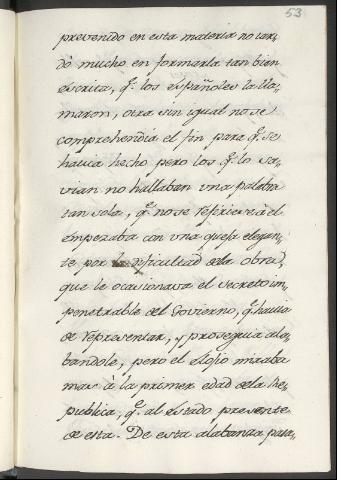 53
prevenido en esta materia no tar-
dò mucho en formarla tan bien
escrita, q.^e los españoles la lla-
maron, otra sin igual no se
comprehendia el fin para q.^e se
hauia hecho pero los q.^e lo sa-
vian no hallaban vna palabra
tan sola, q.^e no se refiriese à el
empezaba con vna quexa elegan-
te por la dificultad dela obra,
que le ocasionava el secreto im-
penetrable del Govierno, q.^e hauia
de representar, y proseguia ala-
bandole, pero el elogio miraba
mas à la primer edad dela Re-
publica, q.^e al estado presente
de esta. De esta alabanza pasa-